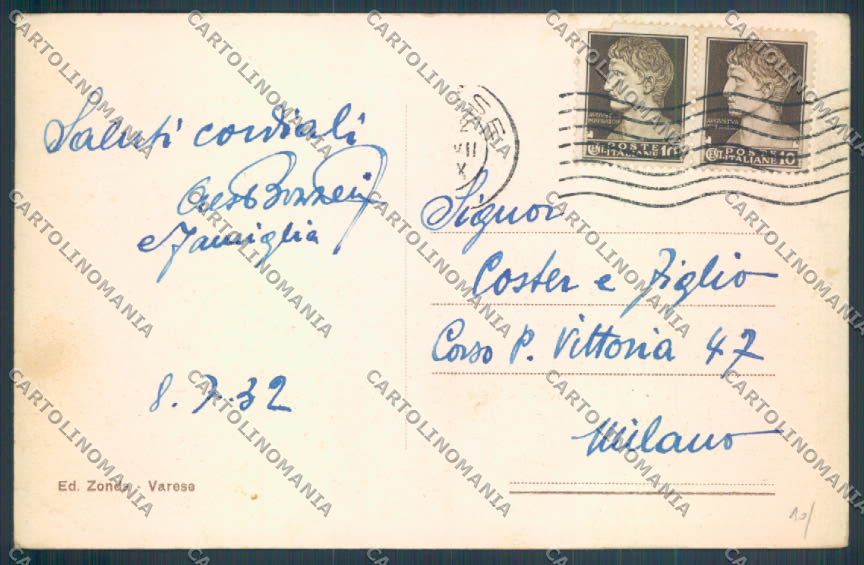 Saluti cordiali
e famiglia
8.7.32
Ed. Zonda - Varese
VII
X
POSTE
ITALIANE
CENT. 10
POSTE
ITALIANE
CENT. 10
Signor
Coster e Figlio
Corso P. Vittoria 47
Milano
CARTOLINOMANIA